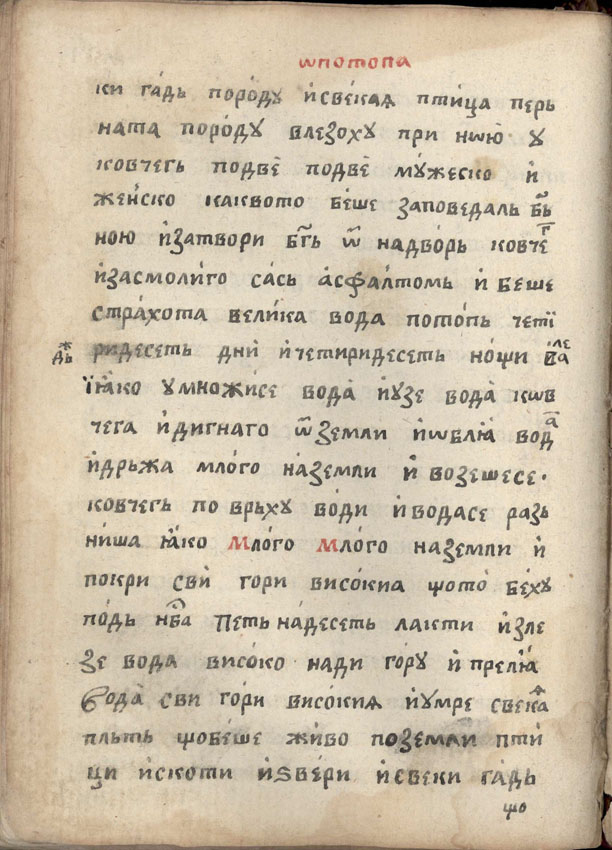 ѡпотопа
ки га́дь поро́ду и҆све́каꙗ пти́ца перь
ната поро́ду влезоху при нѡю̀ у
ковчегь подвѐ подвѐ му́жеско и҆
же́нско каквото бе́ше заповедаль бг҃ь
ною и҆затвори бг҃ь ѿ надво́рь ковчег
и҆засмоли́го са́сь а҆сфа́лтомь и҆ беше
стра́хота вели́ка вода пото́пь четї
ридесеть дни̑ и҆четиридесеть но́щи валеꙗ
дьжⷣь
ї҆ꙗко умножи́се вода̀ и҆узе вода̀ кѡв
чега и҆дигнаго ѿземли и҆ѡблиꙗ̀ вода̀
и҆дрьжа мло́го на́земли и҆ возешесе ·
ковчегь по врьху во́ди и҆ водасе разь
ни́ша ꙗ҆ко мло́го мло́го наземли и҆
покри сви̑ гори висо́киа щото̀ бе́ху
по́дь нб҃а Петь на́десеть лакти и҆зле
зе вода висо́ко нади гору и҆ прелиꙗ̀
вода̀ сви го́ри висо́киꙗ и҆умре свекаꙗ
пльть щобе́ше живо поземли пти́
ци и҆скоти и҆ѕве́ри и҆свеки га́дь
що